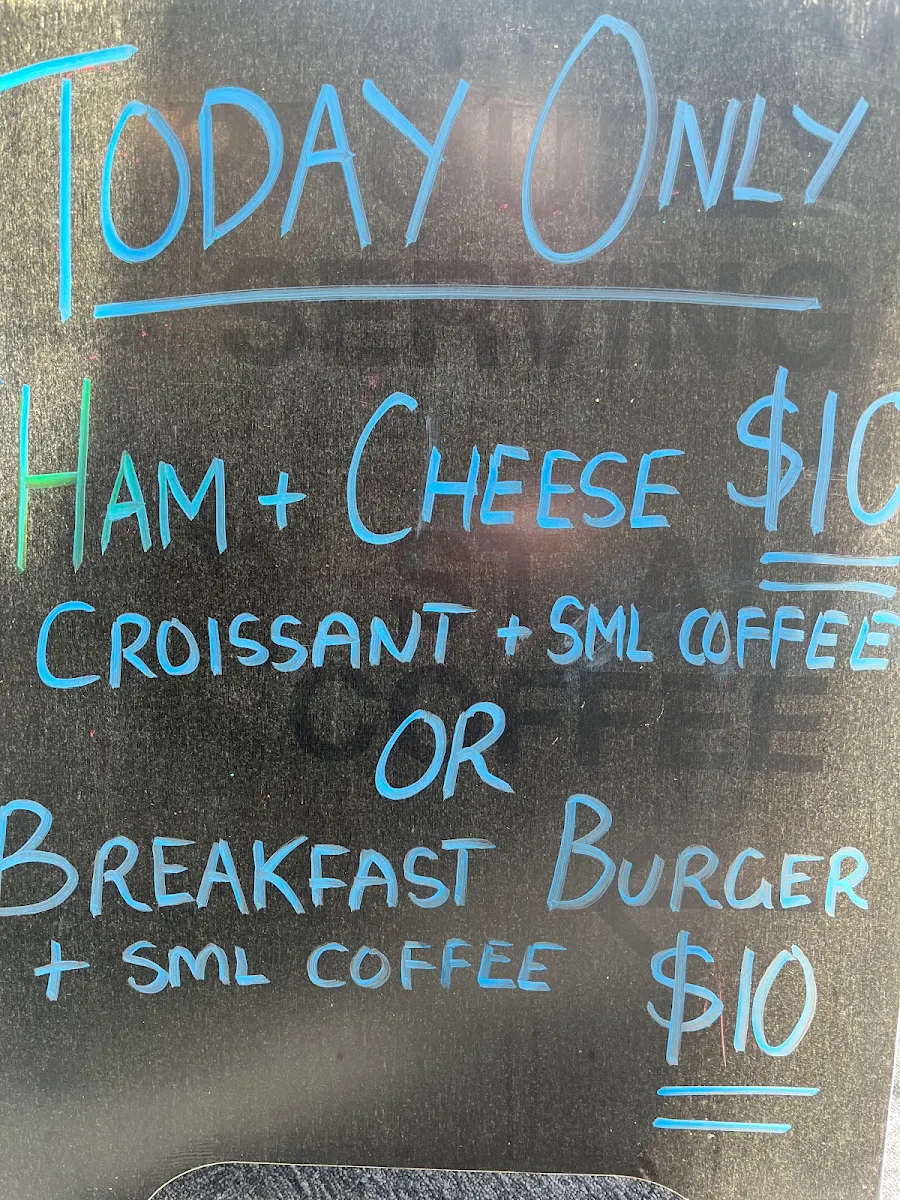 TODAY ONLY
HAM + CHEESE $10
CROISSANT + SML COFFEE
OR
BREAKFAST BURGER
+ SML COFFEE $10
SERVING
COFFEE